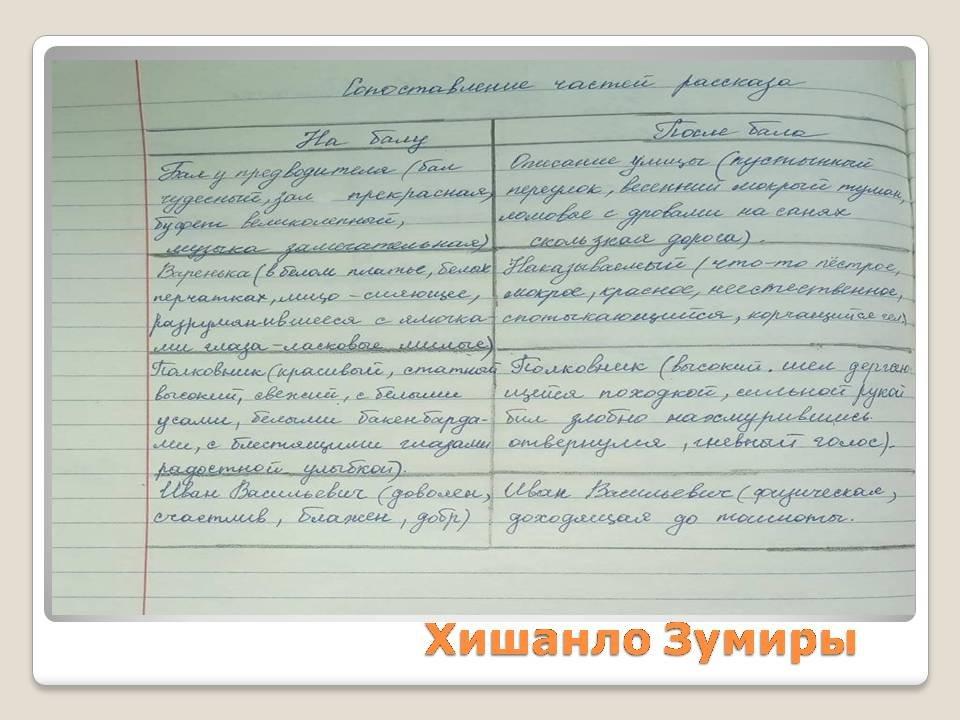 Сопоставление частей рассказа
На балу
Бал у предводителя (бал
чудесный, зал прекрасная,
буфет великолепный,
музыка замечательная)
Варенька (в белом платье, белых
перчатках, лицо - сияющее,
разрумянившееся с ямочка-
ми глаза - ласковые милые)
Полковник (красивый, статный
высокий, свежий, с белыми
усами, белыми бакенбарда-
ми, с блестящими глазами
радостной улыбкой).
Иван Васильевич (доволен,
счастлив, блажен, добр)
После бала
Описание улицы (пустынный
переулок, весенний мокрый туман,
ломовое с дровами на санях
скользкая дорога).
Наказываемый (что-то пёстрое,
мокрое, красное, неестественное,
спотыкающийся, корчащийся чел)
Полковник (высокий. шел дергаю-
щейся походкой, сильной рукой
бил злобно нахмурившись
отвернулся, гневный голос).
Иван Васильевич (физическая,
доходящая до тошноты.
Хишанло Зумиры